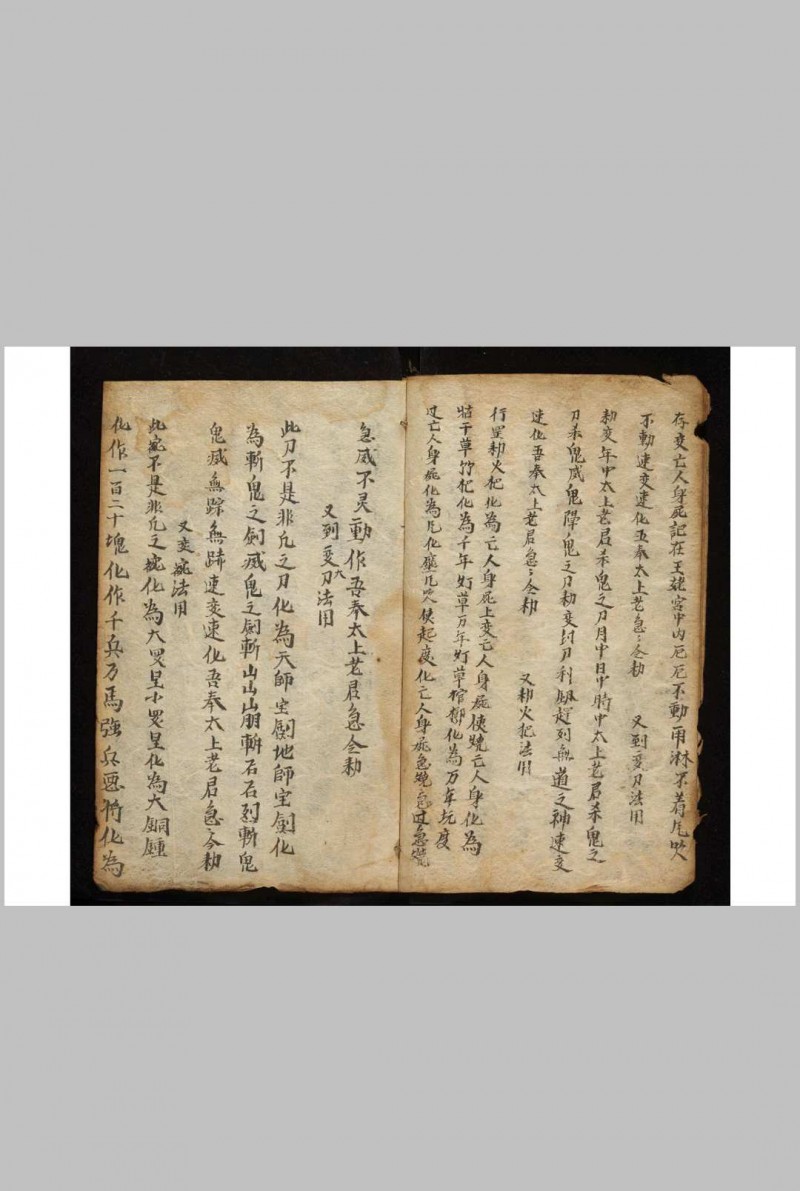 存变亡人身屍記在王姥宮中内厄厄不動雨淋不着凡吹
不動速变速化吾奉太上老急〻令勅 又到变刀法用
勅变年中太上老君杀鬼之刀月中日中時中太上老君杀鬼之
刀杀鬼威鬼降鬼之刀勅变封刀利 赶到無道之神速变
速化吾奉太上老君急〻令勅 又勅火把法用
行罡勅火把化為亡人身屍上变亡人身屍使燒亡人身化為
茆草竹把化為千年灯草万年灯草棺槨化為万年坑度
过亡人身屍化為凡化 凡吹使起度化亡人身屍急燒急过急
急威不灵動作吾奉太上老君急令勅
又到变刀法用
此刀不是非凡之刀化為天師宝劍地師宝劍化
為斬鬼之劍威鬼之劍斬山山崩斬石石烈斬鬼
鬼威無踪無跡速变速化吾奉太上老君急〻令勅
又变碗法用
此碗不是非凡之碗化為大罡小罡化為大銅鍾
化作一百二十塊化作千兵万馬強兵惡将化為